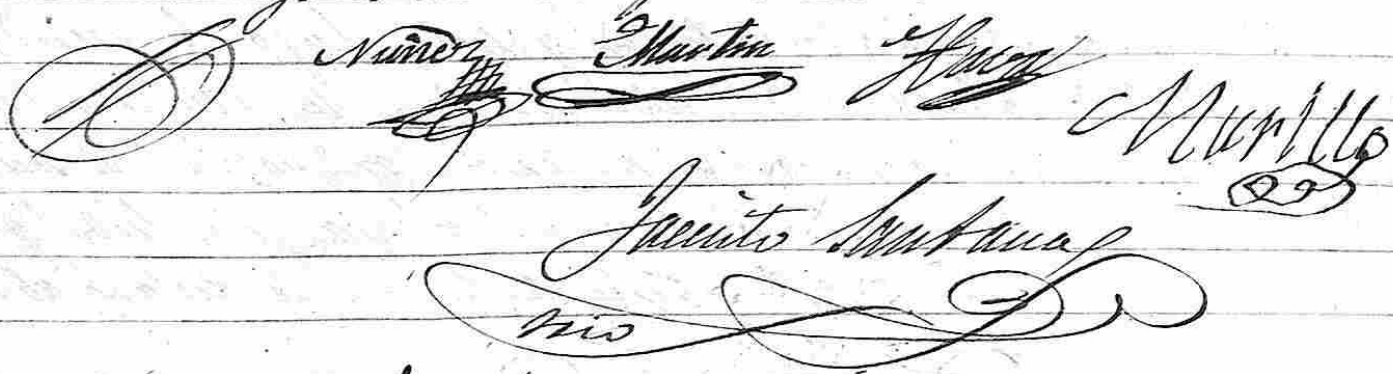 Nuñez Martin
Murillo
Jacinto Santana
srio